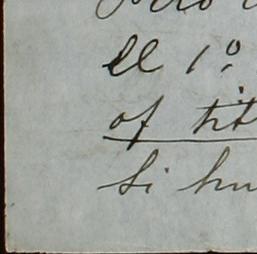 el 1º
of tit
Si hu